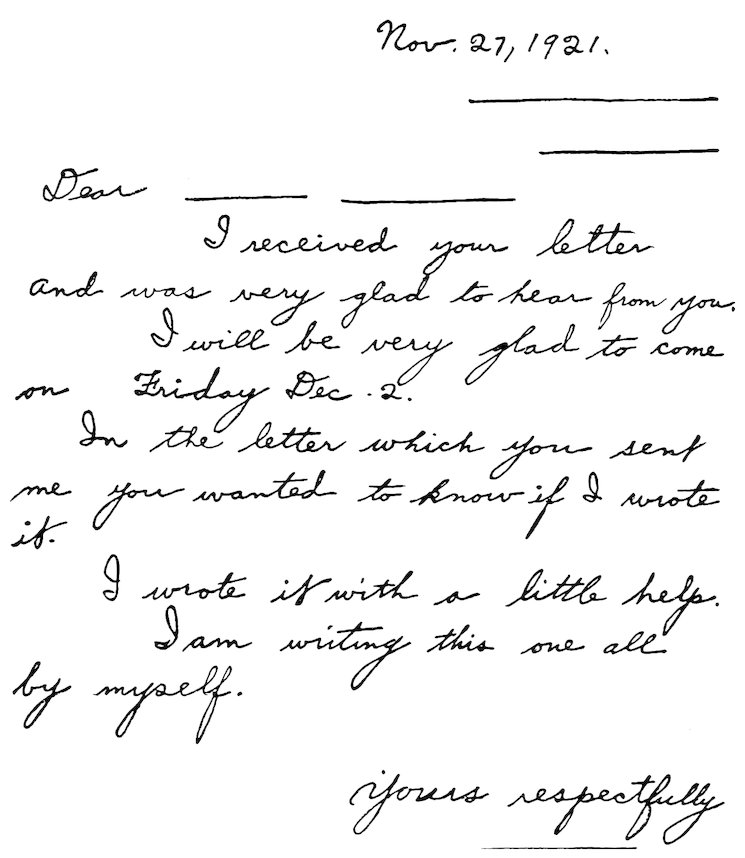 Nov. 27, 1921.
Dear
I received your letter
and was very glad to hear from you.
I will be very glad to come
on Friday Dec. 2.
In the letter which you sent
me you wanted to know if I wrote
it.
I wrote it with a little help.
I am writing this one all
by myself.
Yours respectfully